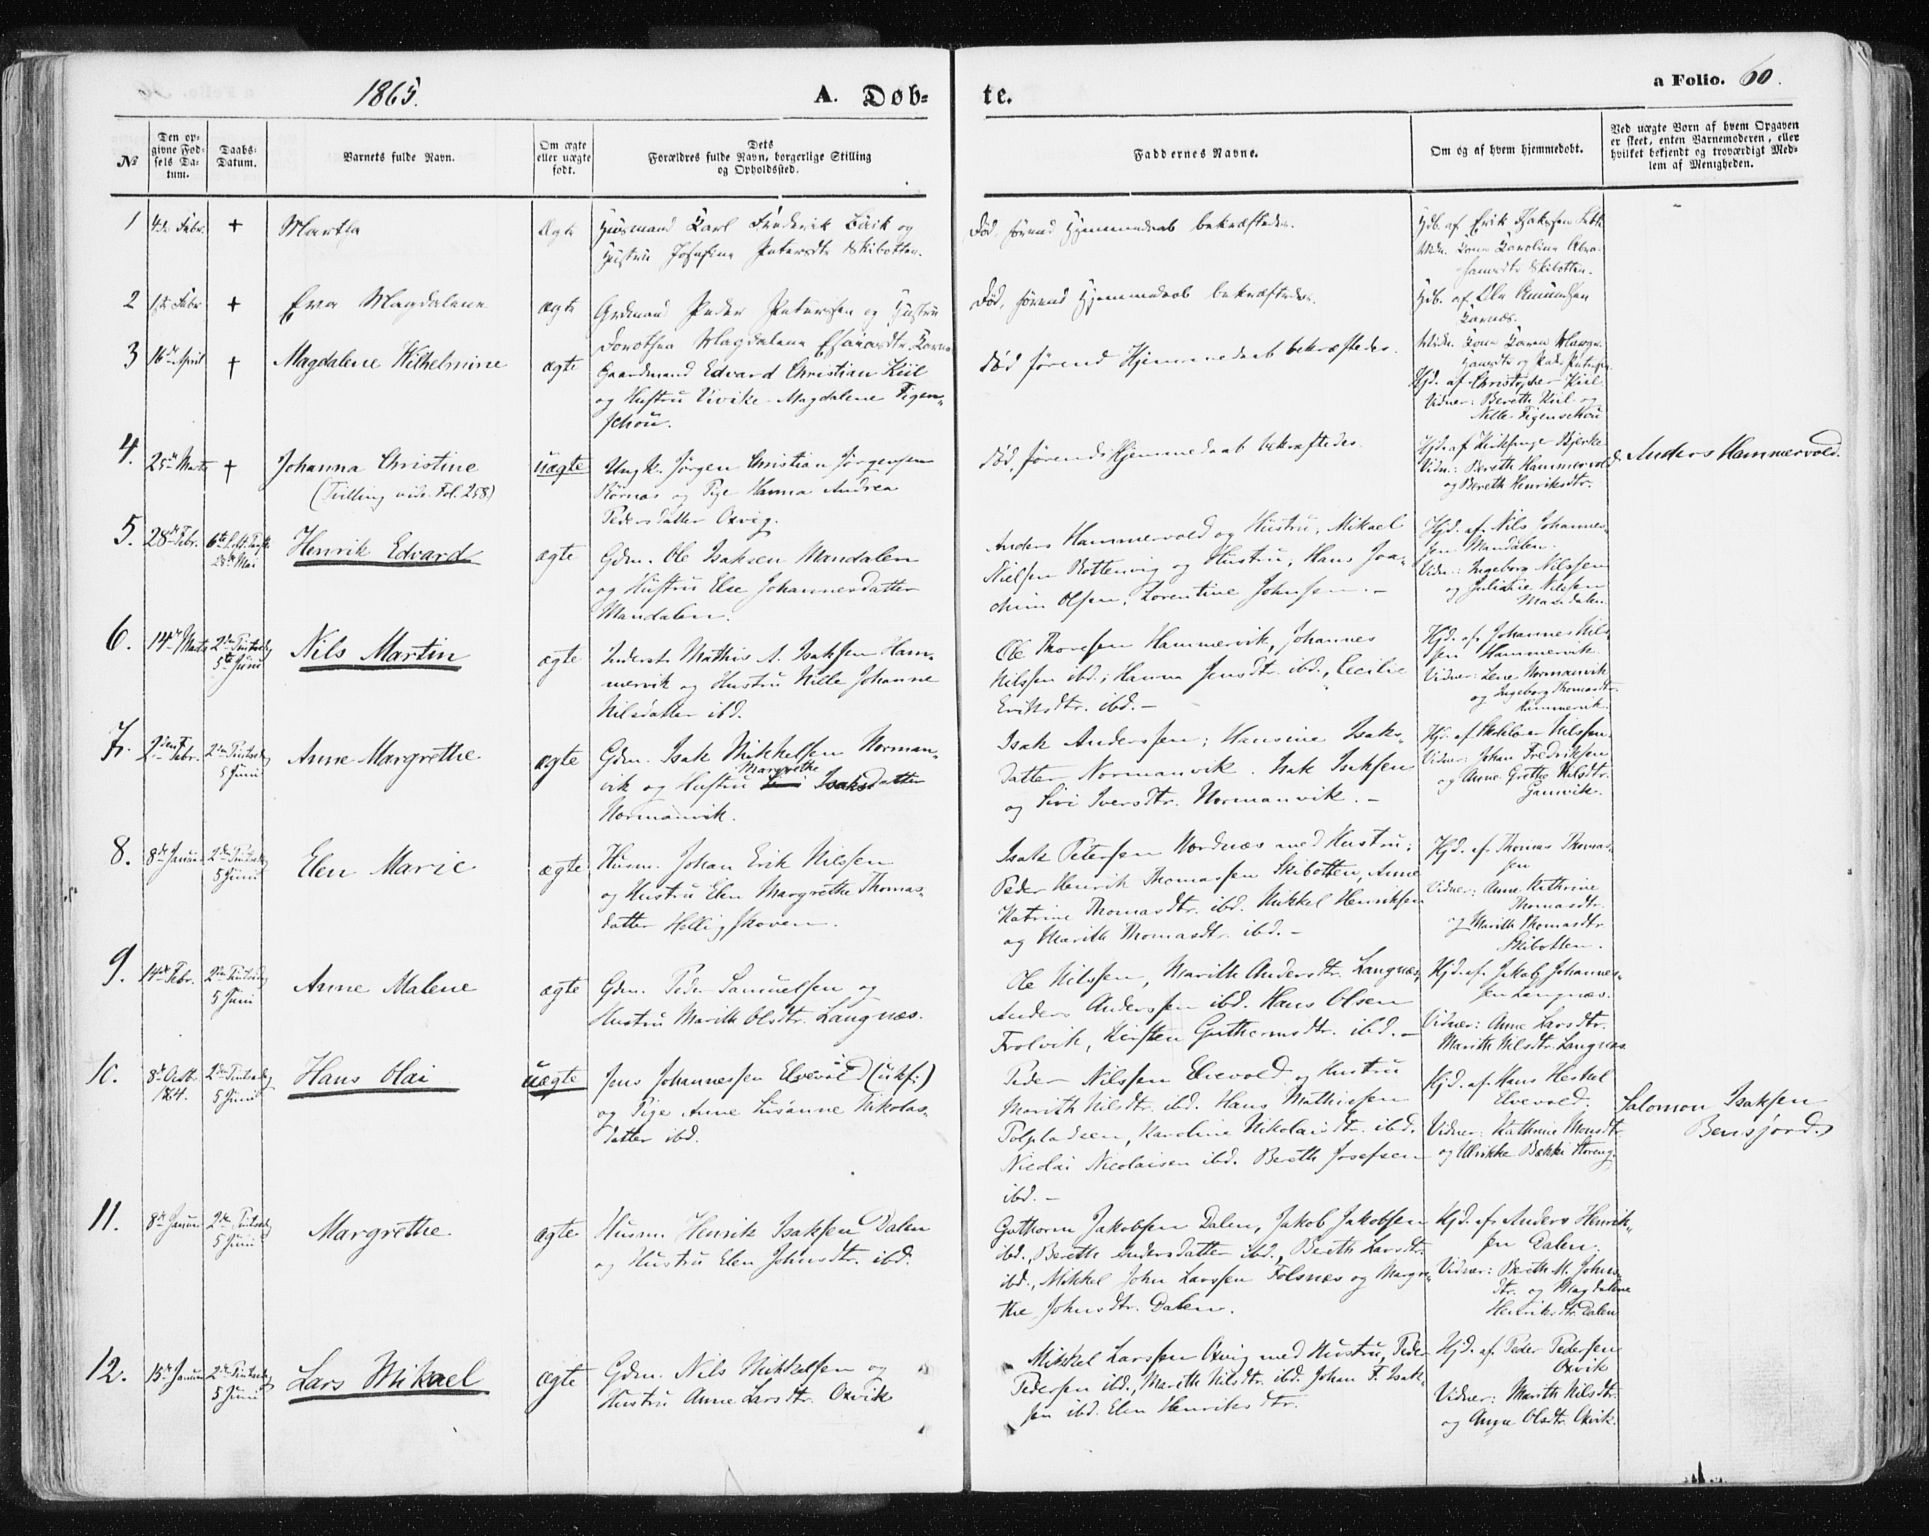 1865.
A. Døb-
te.
a Folio. 60.
№
Den op-
givne Fød-
sels Da-
tum.
Daabs-
Datum.
Barnets fulde Navn.
Om ægte
eller uægte
født.
Dets
Forældres fulde Navn, borgerlige Stilling
og Opholdssted.
Faddernes Navne.
Om og af hvem hjemmedøbt.
Ved uægte Børn af hvem Opgaven
er skeet, enten Barnemoderen, eller
hvilket bekjendt og troværdigt Med-
lem af Menigheden.
1
4de Febr.
+
Martha
ægte
Huusmand Carl Frederik Bäik og
Hustru Josefine Petersdtr Skibotten.
Død, førend Hjemmedaab bekræftedes.
Hjdb. af Erik Isaksen
Vidn. Karoline Abra-
hamsdtr Skibotten.
2
1ste Febr
+
Eva Magdalena
ægte
Grdmand Peder Petersen og Hustru
Dorothea Magdalena
Død, førend Hjemmedaab bekræftedes.
Hjdb. af Ole Amundsen
3
16de April
+
Magdalene Wilhelmine
ægte
Gaardmand Edvard Christian Kiil
og Hustru Vivike Magdalene Figen-
schou.
død førend Hjemmedaab bekræftedes.
Hjd. af Christopher Kiil
Vidner: Bereth Kiil og
Nille Figenschou
4.
25de Marts
+
Johanna Christine
(Tvilling vide Fol. 258)
uægte
Ungk. Jørgen Christian Jørgensen
og Pige Hanna Andrea
Pedersdatter Oxvig.
død, førend Hjemmedaab bekræftedes
Hjd. af Kirkesanger Bjerke
Vidn: Bereth Hammervold
og Bereth Henriksdtr.
Anders Hammervold.
5.
28de Febr.
28de Mai
Henrik Edvard
ægte
Gdm. Ole Isaksen Mandalen
og Hustru Else Johannesdatter
Mandalen.
Anders Hammervold og Hustru, Mikael
Nielsen Rottenvig og Hustru, Hans Joa-
chim Olsen, Lorentine Johnsen.-
Hjd. af Nils Johannes-
sen Mandalen.
Vidn: Ingeborg Nilssen
og Julianne Nilssen
Mandalen
6.
14de Marts
2den Pintsedag
5te Juni
Nils Martin
ægte
Inderst Mathis A. Isaksen Ham-
mervik og Hustru Nille Johanne
Nilsdatter ibd.
Ole Thoresen Hammervik, Johannes
Nilssen ibd; Hanna Jensdtr. ibd., Cecilie
Eriksdtr. ibd.-
Hjd. af Johannes Nils-
sen Hammervik.
Vidner: Lene Normanvik
og Ingeborg Thomasdtr
Hammervik.
7.
2den Febr.
2den Pintsedag
5 Juni
Anne Margrethe
ægte
Gdm. Isak Mikkelsen Norman-
vik og Hustru Margrethe Isaksdatter
Normanvik.
Isak Anderssen; Hansine Isaks-
datter Normanvik. Isak Isaksen
og Siri Iversdtr. Normanvik.-
Hjd. af Nilssen
Vidner: Johan Fredriksen
og Anne Grethe Nilsdtr.
Gamvik.
8.
8de Januar
2den Pintsedag
5 Juni
Elen Marie
ægte
Husm. Johan Erik Nilssen
og Hustru Elen Margrethe Thomas-
datter Helligskoven.
Isak Petersen Nordnæs med Hustru;
Peder Henrik Thomassen Skibotten, Anne
Katrine Thomasdtr. ibd. Mikkel Henriksen
og Marith Thomasdtr. ibd.-
Hjd. af Thomas Thomas-
sen
Vidner: Anne Kathrine
Thomasdtr.
og Marith Thomasdtr
Skibotten.
9.
14de Febr.
2den Pintsedag
5 Juni
Anne Malene
ægte
Gdm. Peder Samuelsen og
Hustru Marith Olsdtr. Langnæs.
Ole Nilssen, Marith Andersdtr. Langnæs,
Anders Anderssen ibd. Hans Olsen
Frolvik, Kirsten Guthormsdtr. ibd.-
Hjd. af Jakob Johannes-
sen Langnæs.
Vidner: Anne Larsdtr.
Marith Nilsdtr. Langnæs
10.
8de Octbr.
1864.
2den Pintsedag
5 Juni
Hans Olai
uægte
Jens Johannessen Elvevold (ukf:)
og Pige Anne Susanne Nikolas-
datter ibd.
Peder Nilssen Elvevold og Hustru
Marith Nilsdtr. ibd. Hans Mathissen
Karoline Nikolaidtr. ibd.
Nicolai Nicolaisen ibd. Bereth Josefsen
ibd.-
Hjd. af Hans Heskel
Elvevold.
Vidner: Kathrine Monsdtr.
og Ulrikke Bækki Storeng.
Salomon Isaksen
Bensjord.
11.
8de Januar
2den Pintsedag
5 Juni
Margrethe
ægte
Husm. Henrik Isaksen Dalen
og Hustru Elen Johnsdtr. ibd.
Guthorm Jakobsen Dalen, Jakob Jakobsen
ibd., Bereth Andersdatter ibd., Bereth Larsdtr.
ibd., Mikkel John Larssen Falsnæs og Margre-
the Johnsdtr. Dalen.
Hjd. af Anders Henrik-
sen Dalen.
Vidner: Bereth M. Johns-
dtr. og Magdalene
Henriksdtr. Dalen
12.
15de Januar
2den Pintsedag
5 Juni
Lars Mikael
ægte
Gdm. Nils Mikkelsen og
Hustru Anne Larsdtr. Oxvik
Mikkel Larssen Oxvig med Hustru, Peder
Pedersen ibd., Marith Nilsdtr. ibd. Johan F. Isak-
sen ibd. Elen Henriksdtr.
Hjd. af Peder Pedersen
Oxvik
Vidner: Marith Nilsdtr.
og Anne Olsdtr. Oxvik.